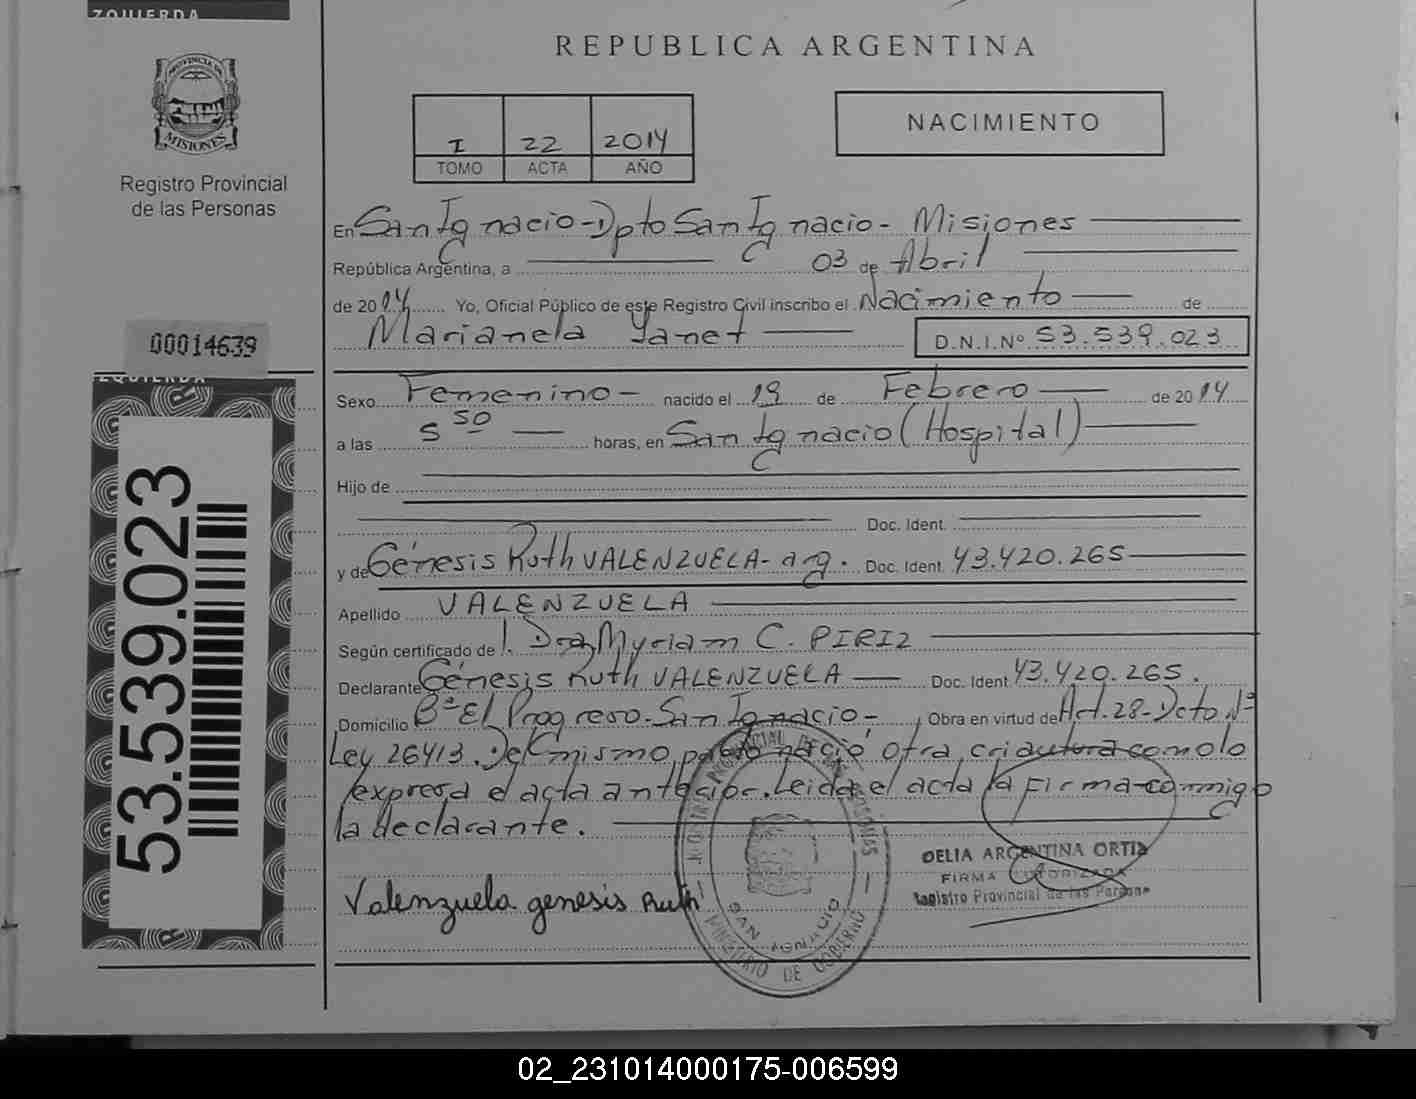 IZQUIERDA
REPUBLICA ARGENTINA
PROVINCIA DE
MISIONES
Registro Provincial
de las Personas
I 22 2014
TOMO ACTA AÑO
NACIMIENTO
En San Ignacio - Dpto San Ignacio - Misiones
República Argentina, a 03 de Abril
de 2014 Yo, Oficial Público de este Registro Civil inscribo el Nacimiento de
Marianela Yanet D.N.I.Nº 53.539.023
00014639
IZQUIERDA
53.539.023
Sexo Femenino - nacido el 19 de Febrero de 2014
a las 5 50 horas, en San Ignacio (Hospital)
Hijo de
Doc. Ident.
y de Génesis Ruth VALENZUELA - arg. Doc. Ident. 43.420.265
Apellido VALENZUELA
Según certificado de Dra Myriam C. PIRIZ
Declarante Génesis Ruth VALENZUELA Doc. Ident. 43.420.265.
Domicilio Bº El Progreso - San Ignacio - Obra en virtud de Art. 28 - Dcto Nº
Ley 26413. Del mismo parto nació otra criatura como lo
expresa el acta anterior. Leida el acta la firma conmigo
la declarante.
Valenzuela genesis Ruth
REGISTRO PROVINCIAL DE LAS PERSONAS
SAN IGNACIO
MINISTERIO DE GOBIERNO
DELIA ARGENTINA ORTIZ
FIRMA AUTORIZADA
Registro Provincial de las Personas
02_231014000175-006599